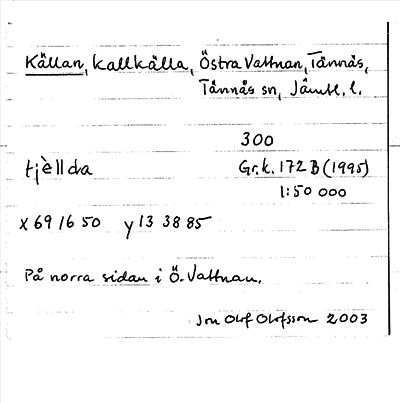 Källan, kallkälla, Östra Vattnan, Tännäs,
Tännäs sn, Jämtl. l.
300
tjèllda Gr.k. 172 B (1995)
1:50 000
x 69 16 50 y 13 38 85
På norra sidan i Ö. Vattnan.
Jon Olof Olofsson 2003